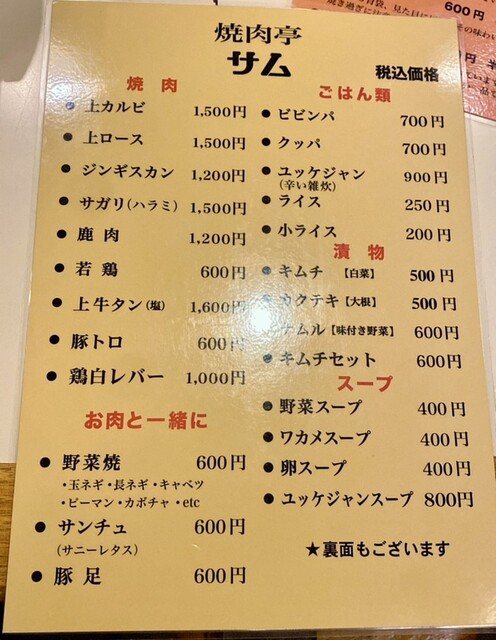 焼肉亭
サム
税込価格
焼肉
上カルビ 1,500円
上ロース 1,500円
ジンギスカン 1,200円
サガリ(ハラミ) 1,500円
鹿肉 1,200円
若鶏 600円
上牛タン(塩) 1,600円
豚トロ 600円
鶏白レバー 1,000円
お肉と一緒に
野菜焼 600円
・玉ネギ・長ネギ・キャベツ
・ピーマン・カボチャ・etc
サンチュ 600円
(サニーレタス)
豚足 600円
ごはん類
ビビンパ 700円
クッパ 700円
ユッケジャン 900円
(辛い雑炊)
ライス 250円
小ライス 200円
漬物
キムチ【白菜】 500円
カクテキ【大根】 500円
ナムル【味付き野菜】 600円
キムチセット 600円
スープ
野菜スープ 400円
ワカメスープ 400円
卵スープ 400円
ユッケジャンスープ 800円
★裏面もございます
600円